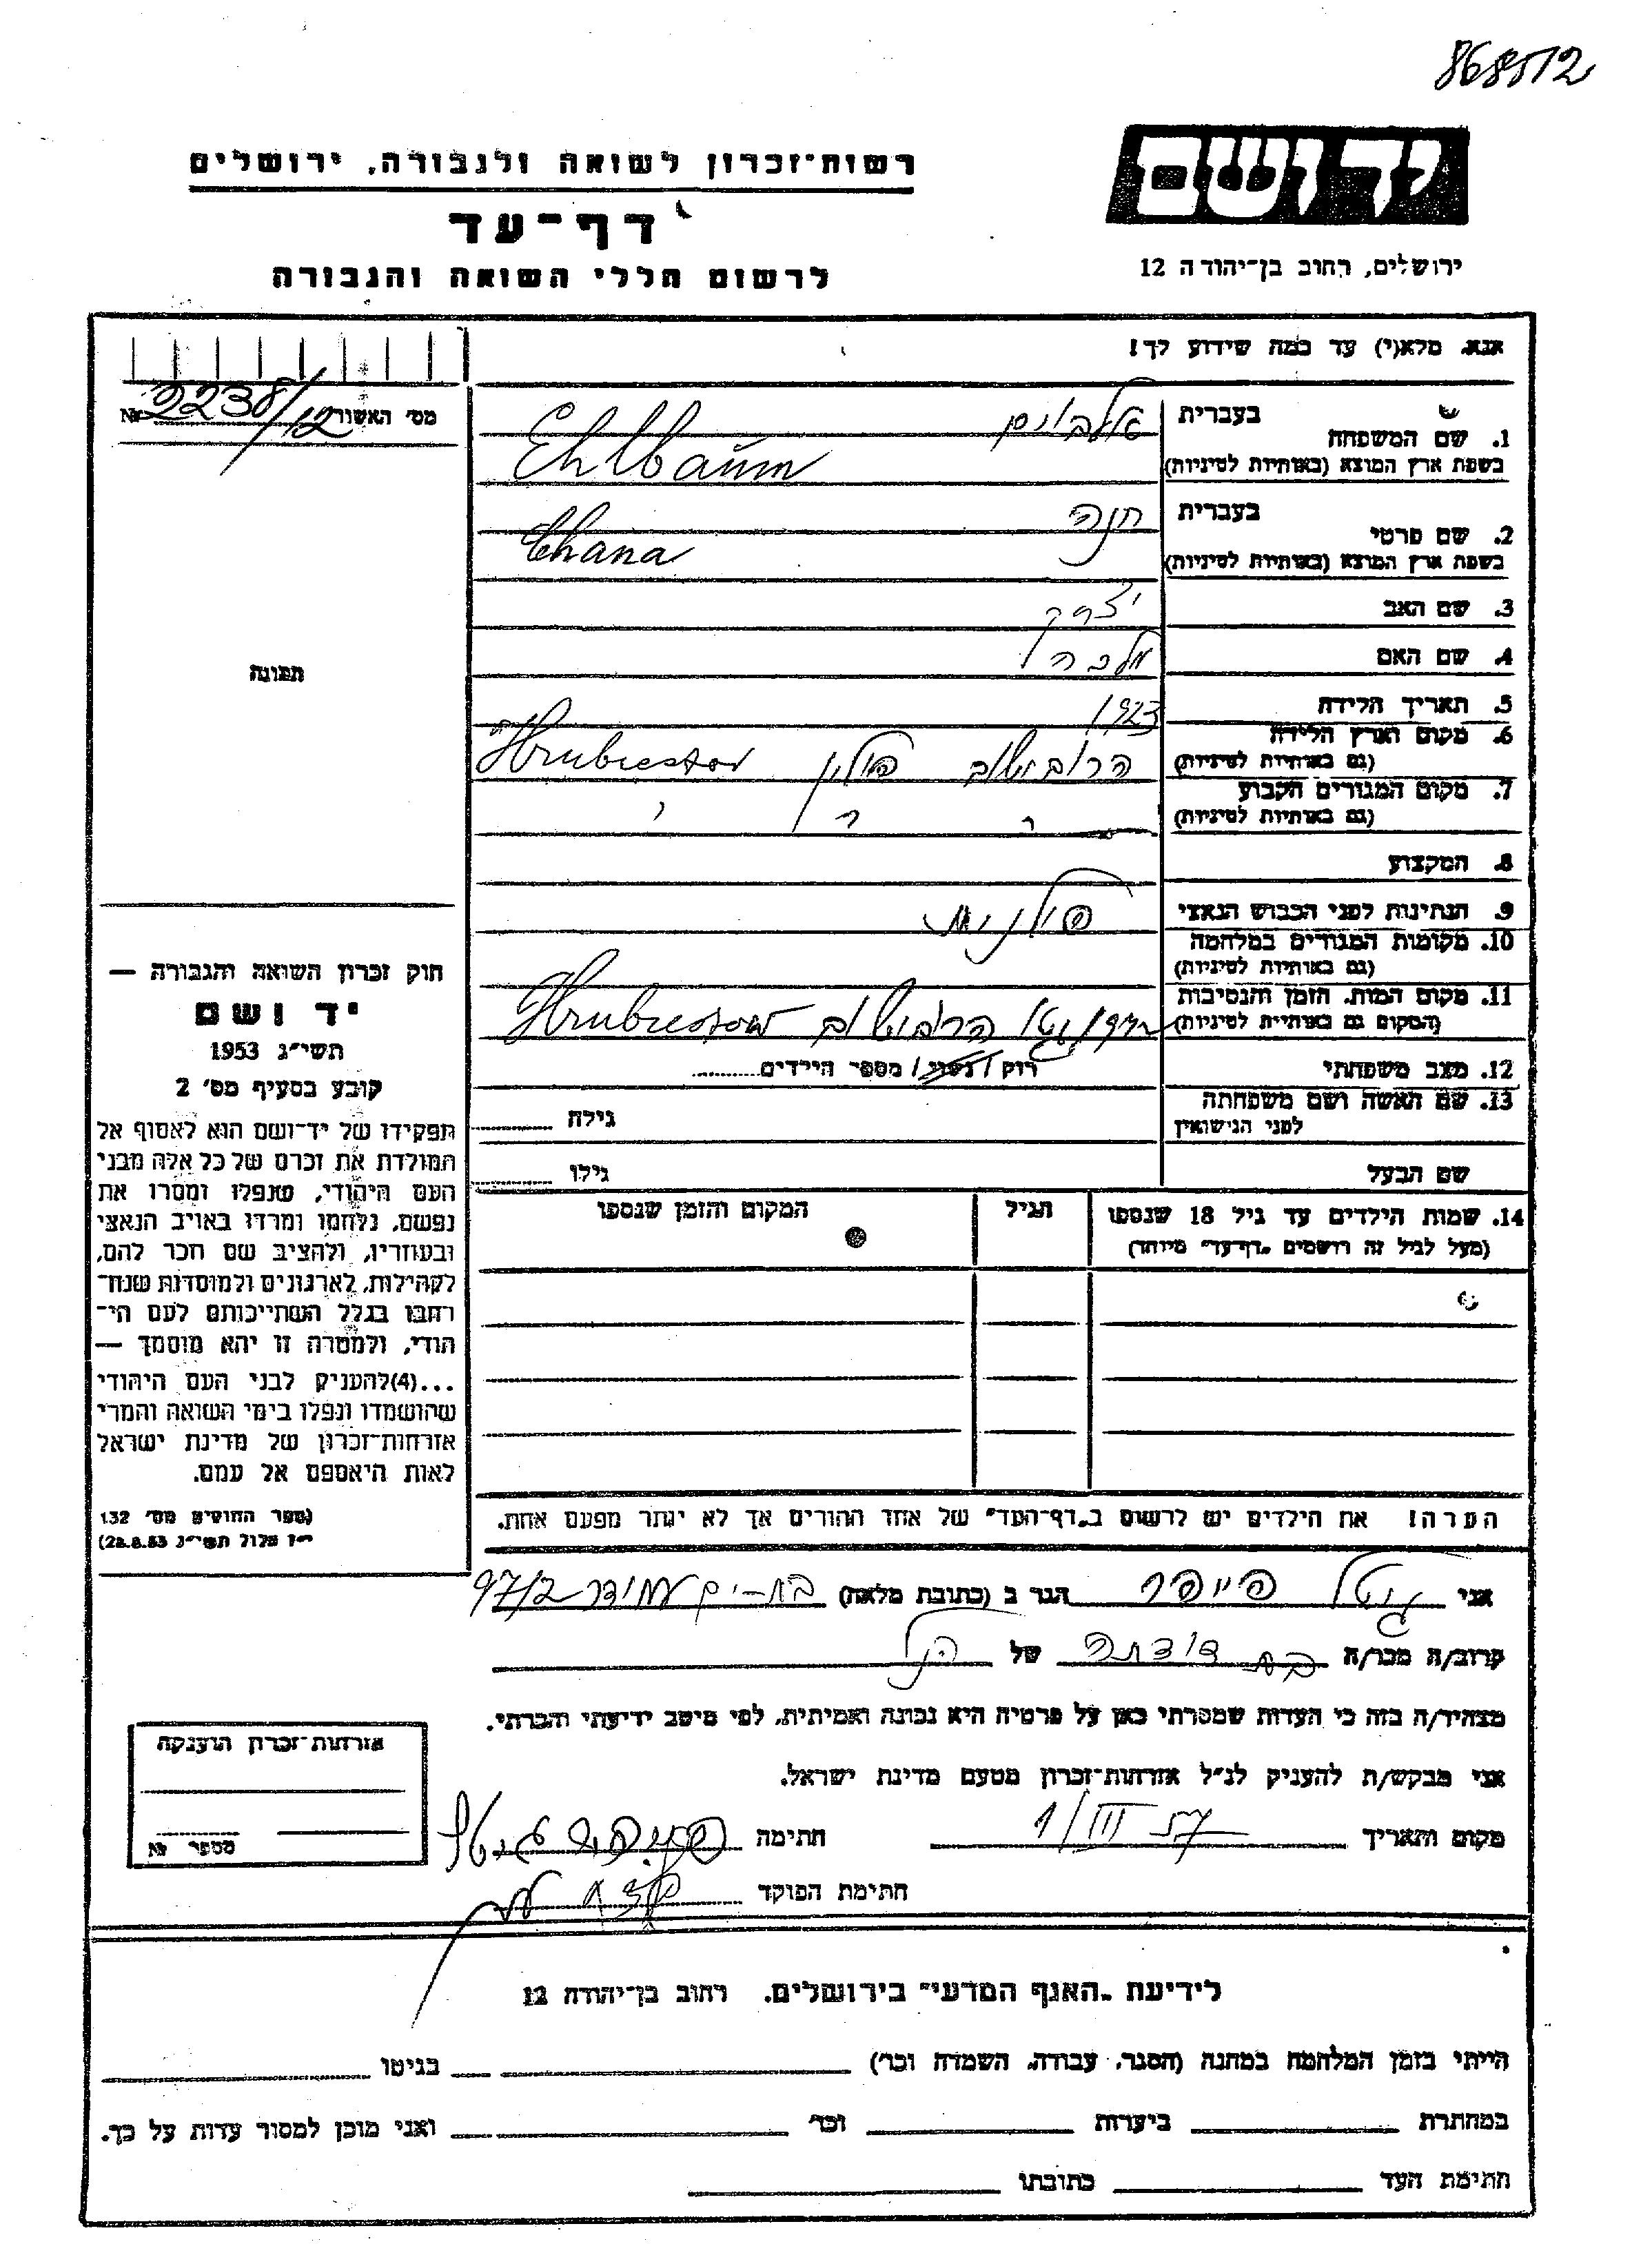 868512
יד ושם
רשות־זכרון לשואה ולגבורה, ירושלים
דף־עד
ירושלים, רחוב בן־יהודה 12
לרשום חללי השואה והגבורה
אנא, מלא(י) עד כמה שידוע לך!
מס׳ האשור № 2238/12
1. שם המשפחה בעברית
Ehlbaum
בשפת ארץ המוצא (באותיות לטיניות)
2. שם פרטי בעברית חנה
בשפת ארץ המוצא (באותיות לטיניות) Chana
3. שם האב יצחק
4. שם האם מלכה
תמונה
5. תאריך הלידה 1923
6. מקום וארץ הלידה
(גם באותיות לטיניות) הרובישוב פולין Hrubiestov
7. מקום המגורים הקבוע
(גם באותיות לטיניות)
8. המקצוע
9. הנתינות לפני הכבוש הנאצי פולנית
10. מקומות המגורים במלחמה
(גם באותיות לטיניות)
11. מקום המות, הזמן והנסיבות
(המקום גם באותיות לטיניות) גטו הרובישוב Hrubieszow
12. מצב משפחתי רווק / נשוי / מספר הילדים
13. שם האשה ושם משפחתה
לפני הנישואין גילה
שם הבעל גילו
14. שמות הילדים עד גיל 18 שנספו הגיל המקום והזמן שנספו
(מעל לגיל זה רושמים „דף־עד״ מיוחד)
חוק זכרון השואה והגבורה —
יד ושם
תשי״ג 1953
קובע בסעיף מס׳ 2
תפקידו של יד־ושם הוא לאסוף אל
המולדת את זכרם של כל אלה מבני
העם היהודי, שנפלו ומסרו את
נפשם, נלחמו ומרדו באויב הנאצי
ובעוזריו, ולהציב שם וזכר להם,
לקהילות, לארגונים ולמוסדות שנח־
רחבו בגלל השתייכותם לעם הי־
הודי, ולמטרה זו יהא מוסמך —
...(4) להעניק לבני העם היהודי
שהושמדו ונפלו בימי השואה והמרי
אזרחות־זכרון של מדינת ישראל
לאות היאספם אל עמם.
(ספר החוקים מס׳ 132
י״ז אלול תשי״ג 28.8.53)
הערה! את הילדים יש לרשום ב„דף־העד״ של אחד ההורים אך לא יותר מפעם אחת.
אני גיטל הגר ב (כתובת מלאה) בת-ים עמידר 97/2
קרוב/ה מכר/ה בת דודתה של הנ״ל
מצהיר/ה בזה כי העדות שמסרתי כאן על פרטיה היא נכונה ואמיתית, לפי מיטב ידיעתי והכרתי.
אני מבקש/ת להעניק לנ״ל אזרחות־זכרון מטעם מדינת ישראל.
מקום ותאריך 1/III 57 חתימה
חתימת הפוקד
אזרחות־זכרון הוענקה
מספר №
לידיעת „האגף המדעי״ בירושלים, רחוב בן־יהודה 12
הייתי בזמן המלחמה במחנה (הסגר, עבודה, השמדה וכו׳) בגיטו
במחתרת ביערות וכו׳ ואני מוכן למסור עדות על כך.
חתימת העד כתובתו